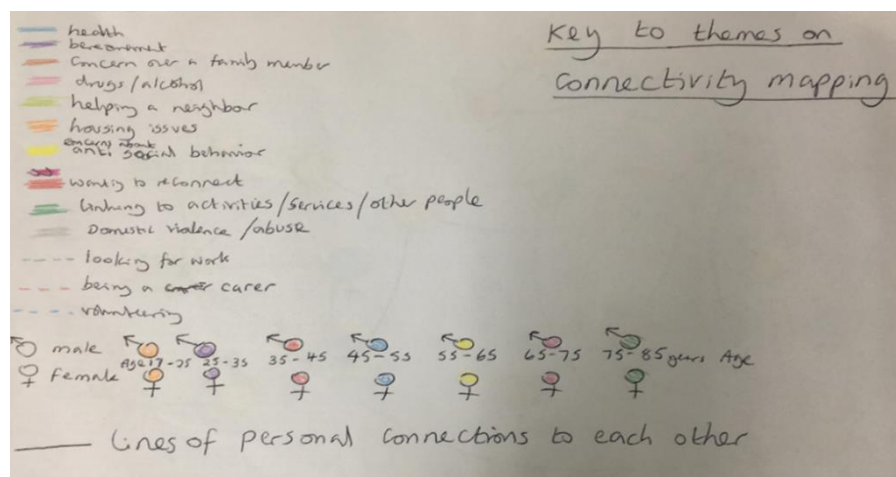 Key to themes on
connectivity mapping
health
bereavement
concern over a family member
drugs/alcohol
helping a neighbor
housing issues
concerns about
anti social behavior
wanting to reconnect
linking to activities/services/other people
Domestic violence/abuse
looking for work
being a carer
volunteering
male
Age 17-25 25-35 35-45 45-55 55-65 65-75 75-85 years Age
female
lines of personal connections to each other